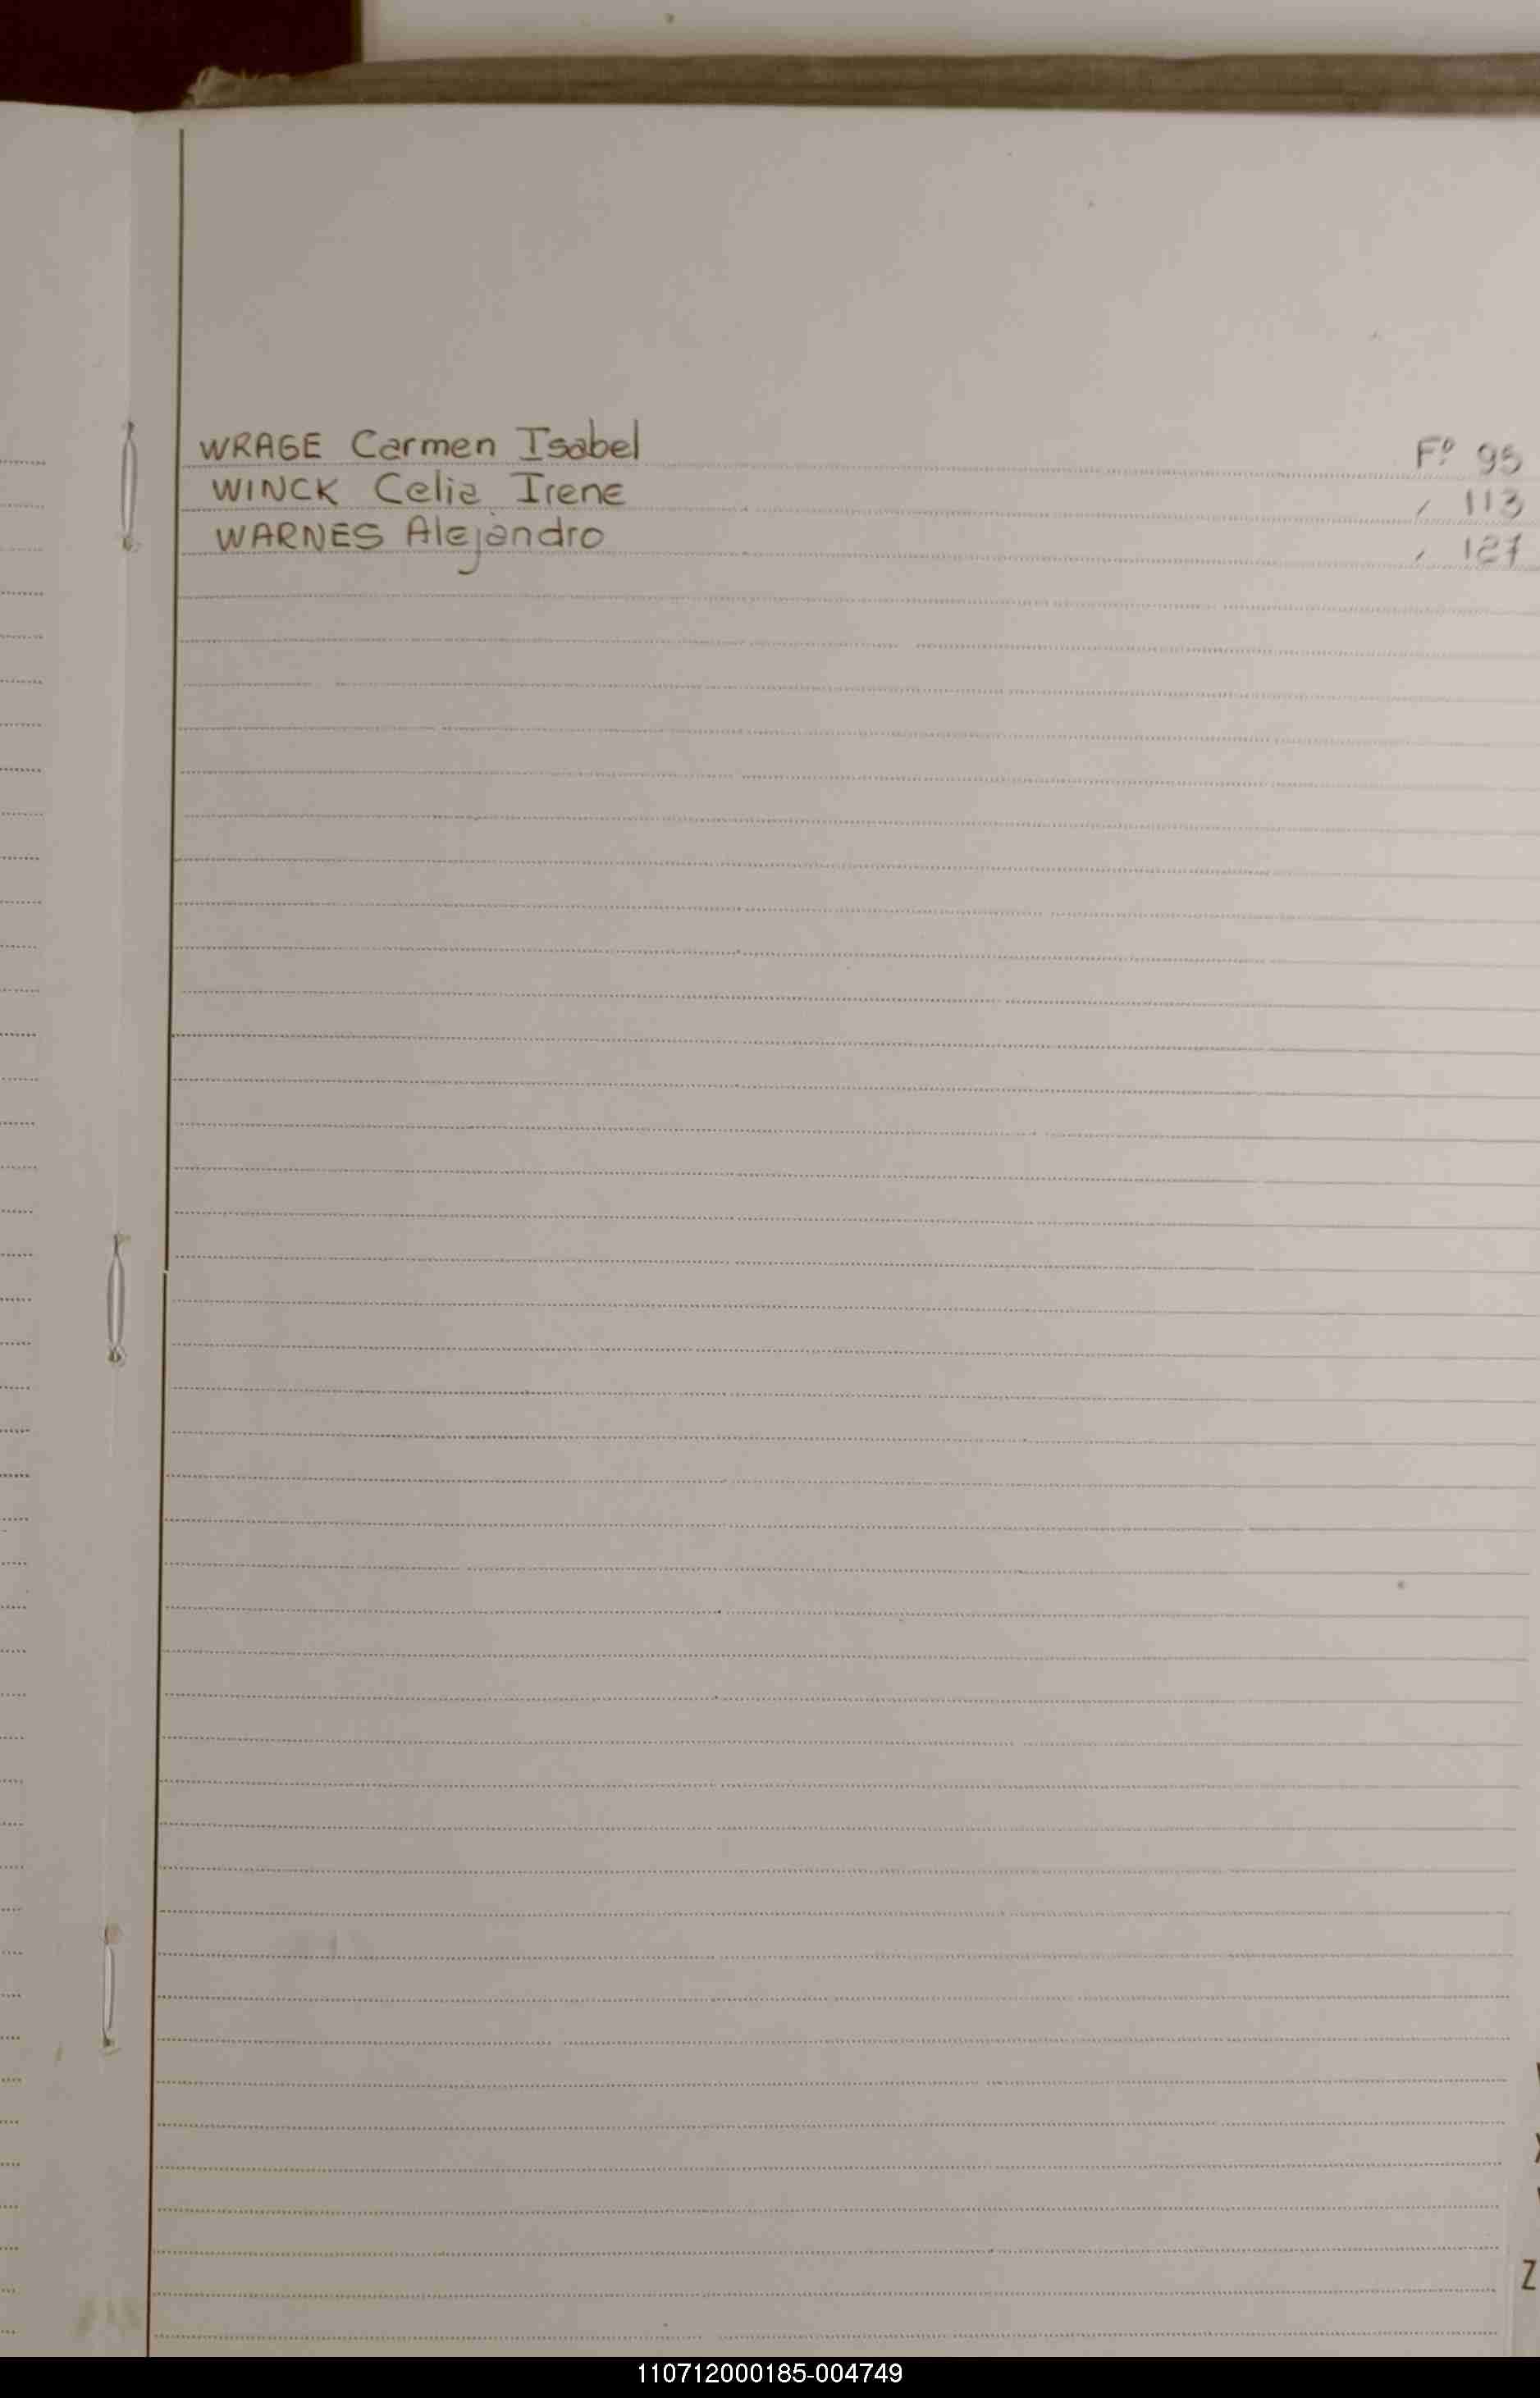 WRAGE Carmen Isabel Fº 95
WINCK Celia Irene , 113
WARNES Alejandro , 127
Z
110712000185-004749